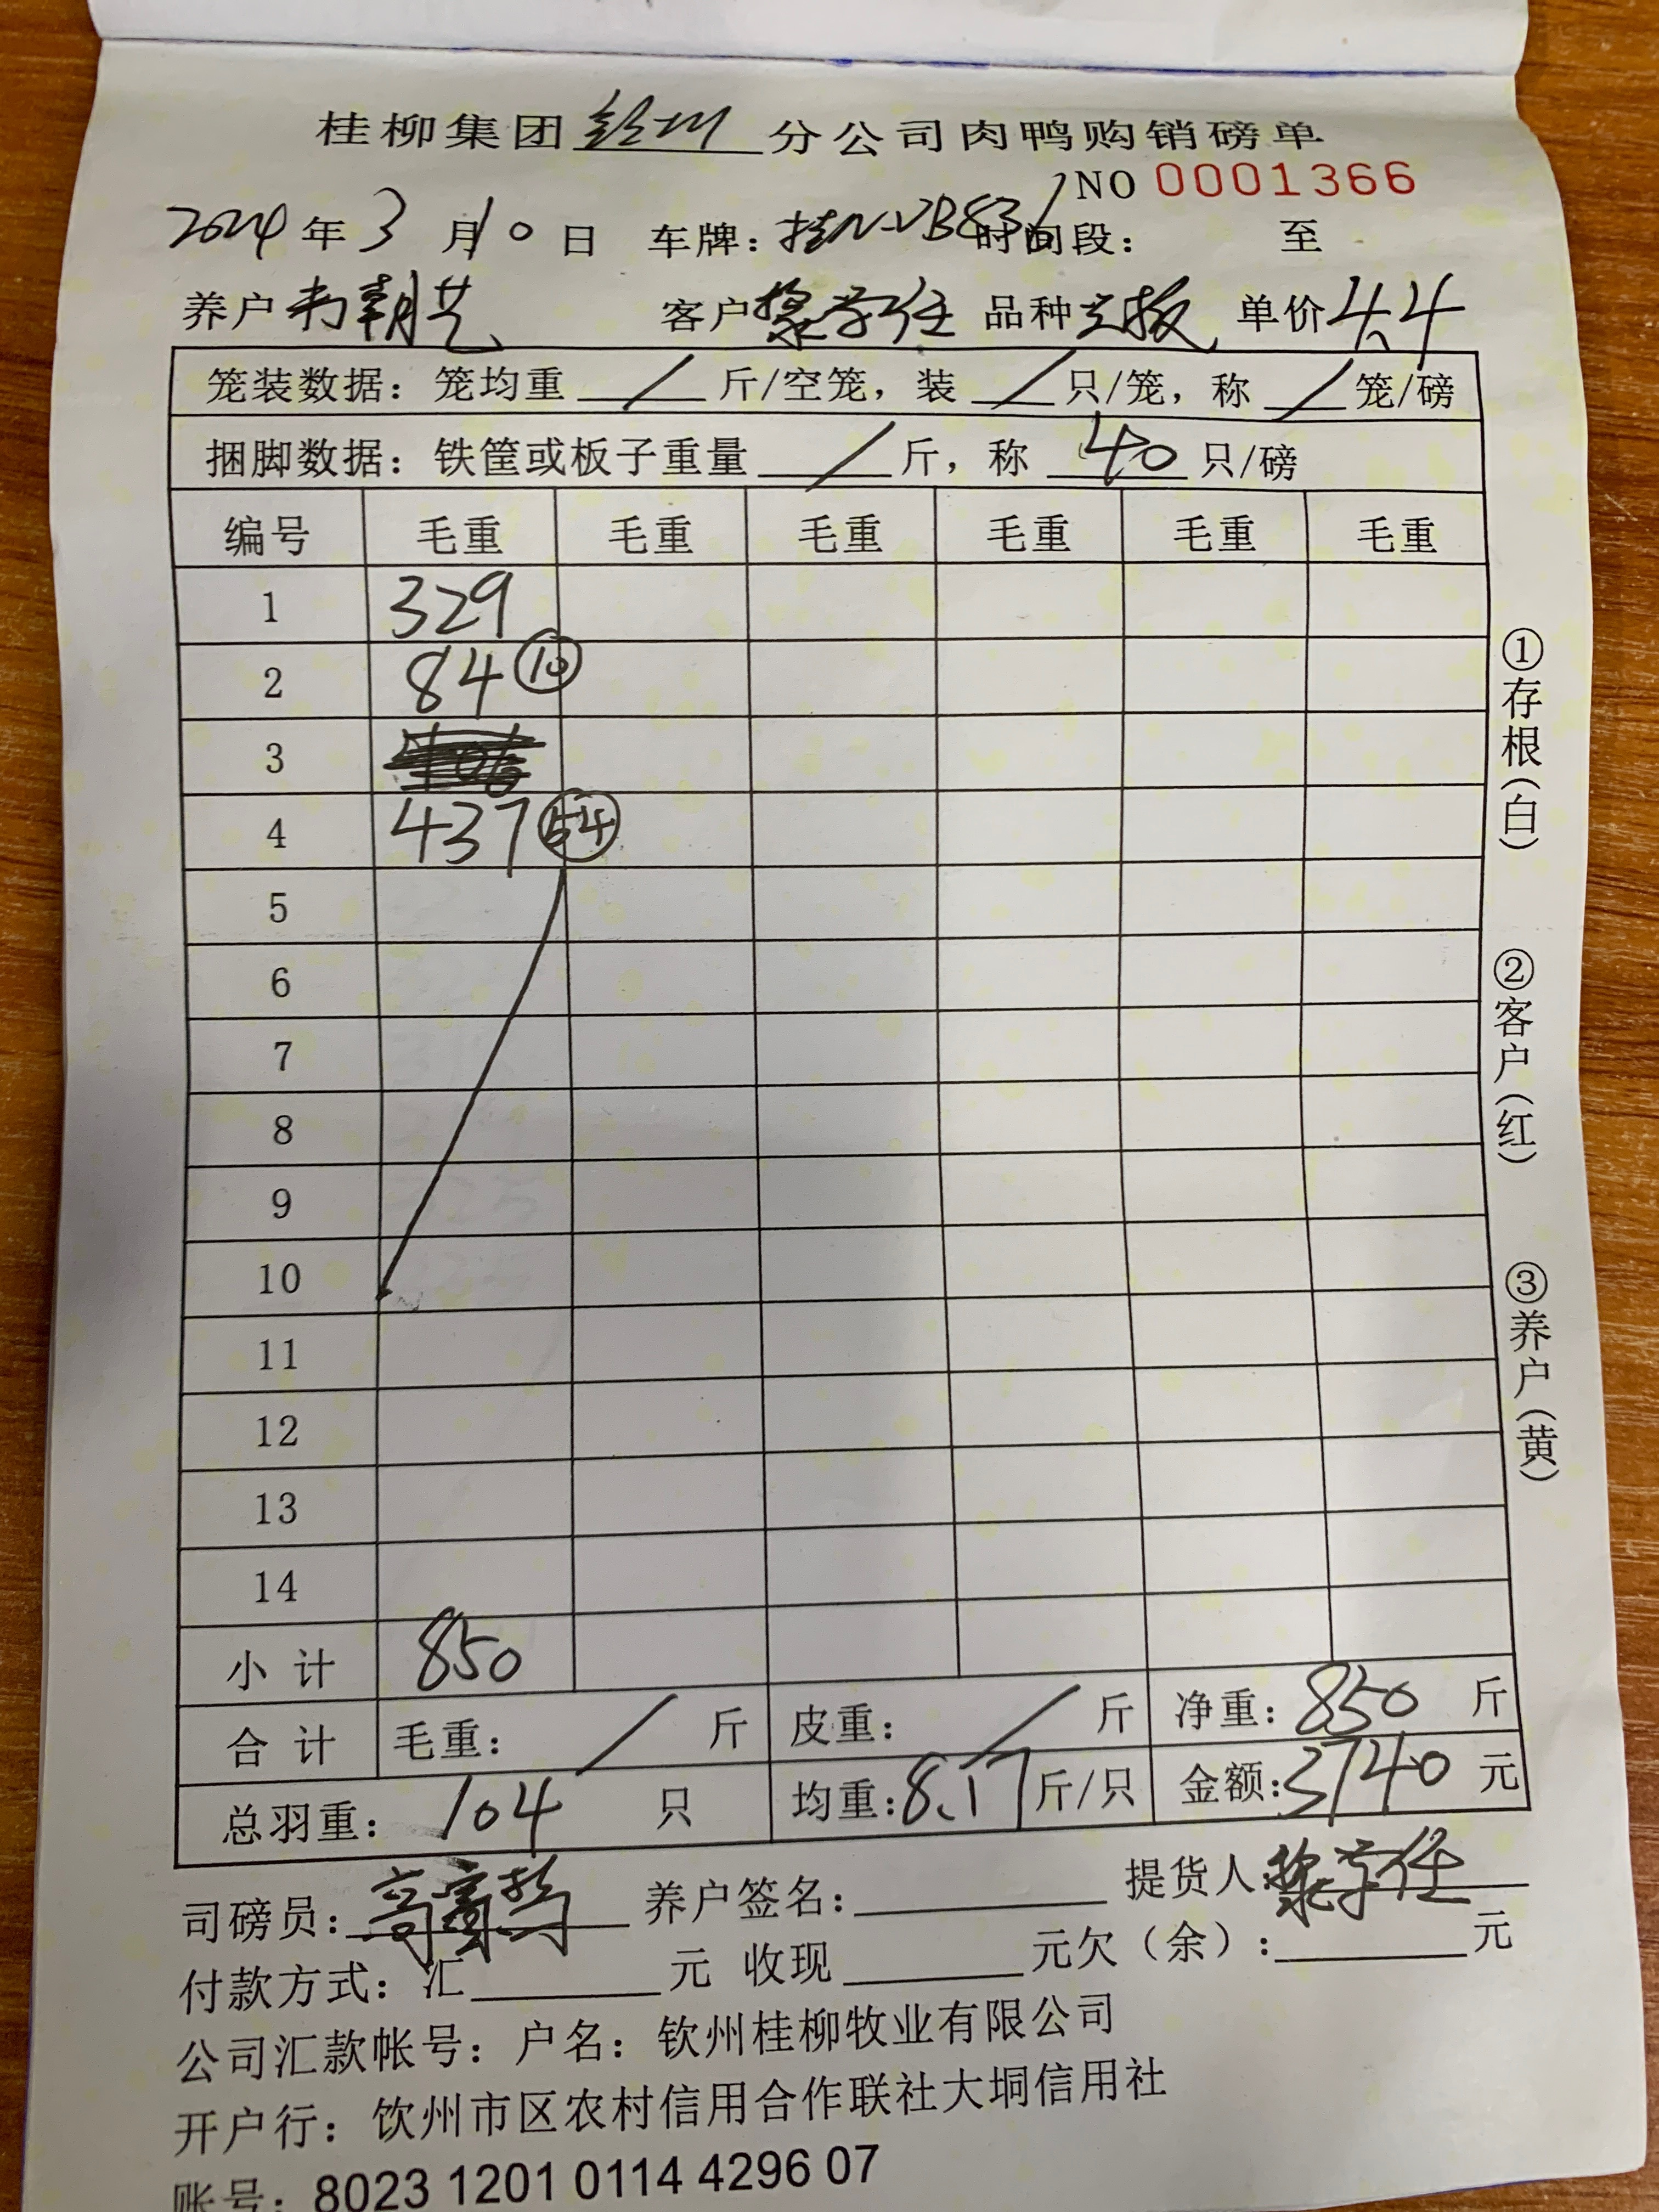 桂柳集团钦州分公司肉鸭购销磅单
NO 0001366
2024年3月10日 车牌：桂N-VB831 时间段： 至
养户韦朝艺 客户黎学任 品种 单价4.4
笼装数据：笼均重 / 斤/空笼，装 / 只/笼，称 / 笼/磅
捆脚数据：铁筐或板子重量 / 斤，称 40 只/磅
编号 毛重 毛重 毛重 毛重 毛重 毛重
1 329
2 84 ⑩
3
4 437 54
5
6
7
8
9
10
11
12
13
14
小计 850
合计 毛重： / 斤 皮重： / 斤 净重：850 斤
总羽重：104 只 均重：8.17斤/只 金额：3740元
①存根（白）
②客户（红）
③养户（黄）
司磅员： 养户签名： 提货人：黎学任
付款方式：汇 元 收现 元欠（余）： 元
公司汇款帐号：户名：钦州桂柳牧业有限公司
开户行：钦州市区农村信用合作联社大垌信用社
账号：8023 1201 0114 4296 07